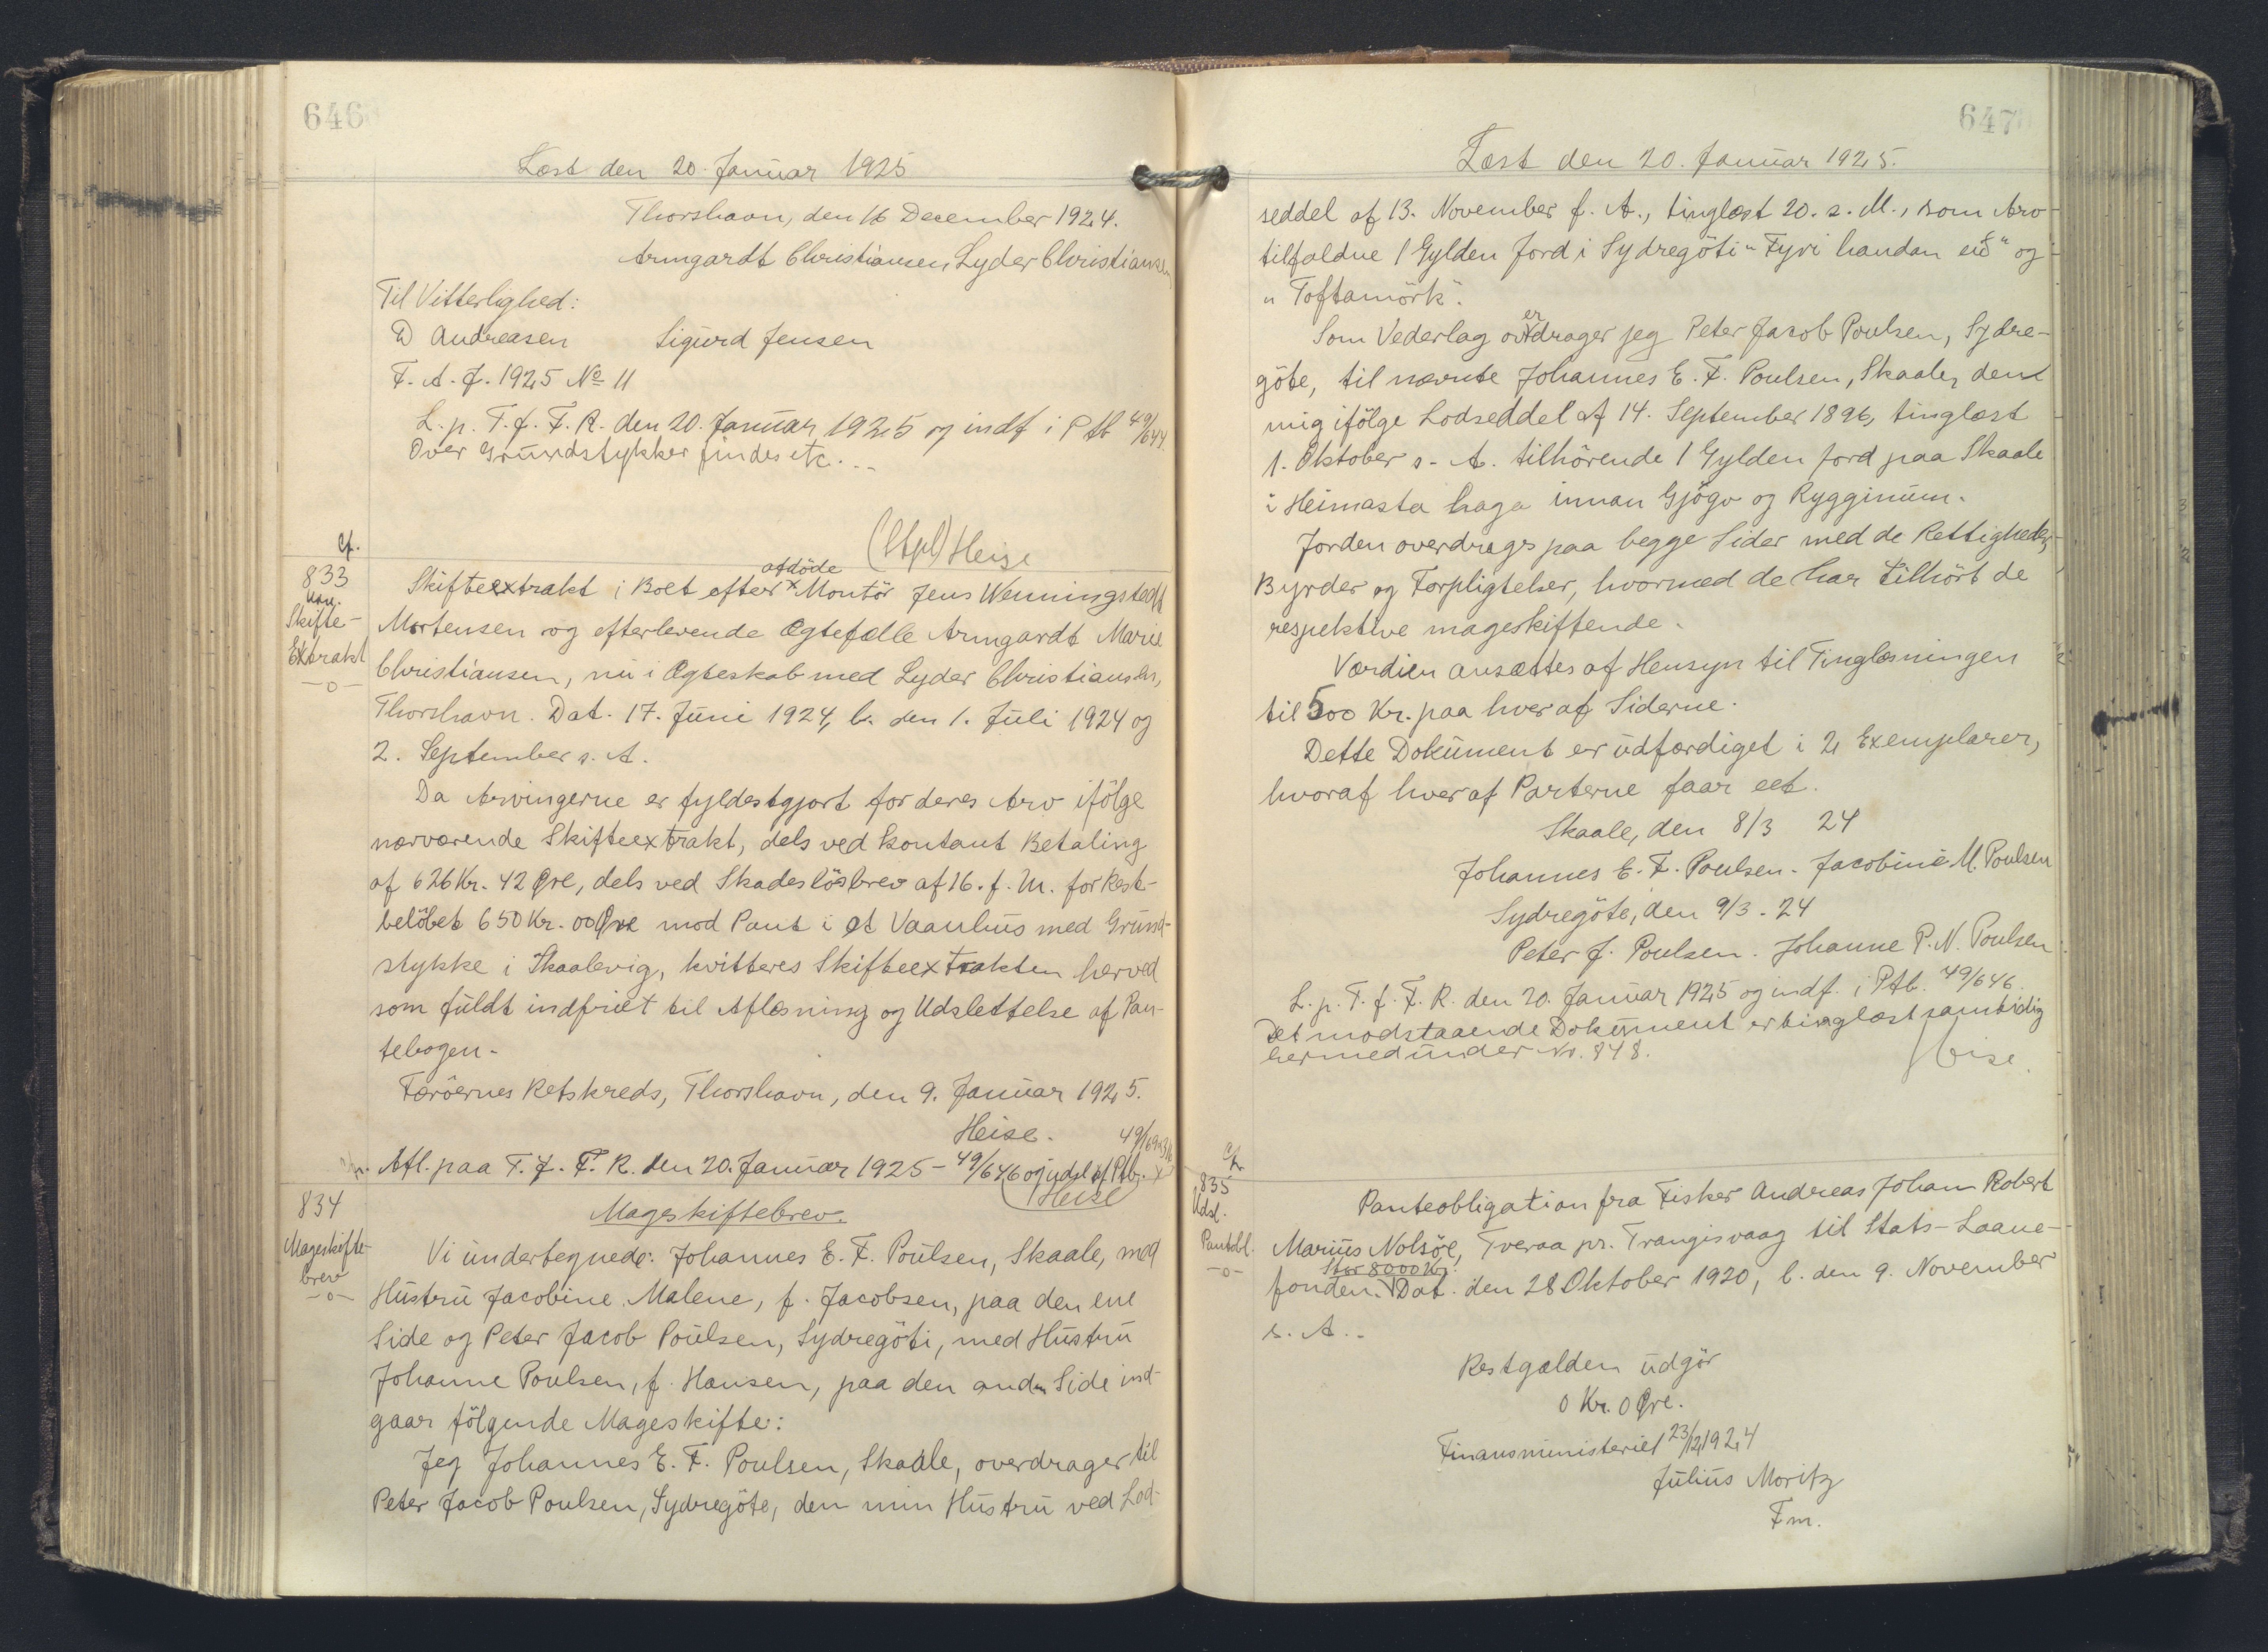 646
Læst den 20. Januar 1925
Thorshavn, den 16 December 1924.
Armgardt Christiansen Lyder Christiansen
Til Vitterlighed:
D Andreasen Sigurd Jensen
F. A. J. 1925 No 11
L. p. T. f. F. R. den 20. Januar 1925 og indf i Ptb 49/644.
Over Grundstykker findes etc. ..
(Stpl) Heise
cf.
833
Skifte-
Extrakt
—o—
Skifteextrakt i Boet efter x afdöde Montör Jens Wenningstedt
Mortensen og efterlevende Ægtefælle Armgardt Marie
Christiansen, nu i Ægteskab med Lyder Christiansen,
Thorshavn. Dat. 17. Juni 1924, l. den 1. Juli 1924 og
2. September s. A.
Da Arvingerne er fyldestgjort for deres Arv ifölge
nærværende Skifteextrakt, dels ved kontant Betaling
af 626 Kr. 42 Øre, dels ved Skadeslösbrev af 16. f. M. for Rest-
belöbet 650 Kr. 00 Øre mod Pant i et Vaanhus med Grund-
stykke i Skaalevig, kvitteres Skifteextrakten herved
som fuldt indfriet til Aflæsning og Udslettelse af Pan-
tebogen.
Færöernes Retskreds, Thorshavn, den 9. Januar 1925.
Heise.
Afl. paa T. f. F. R. den 20. Januar 1925 - 49/646 og udsl af Ptb. x
(Heise)
834
Mageskifte-
brev
—o—
Mageskiftebrev.
Vi undertegnede: Johannes E. F. Poulsen, Skaale, med
Hustru Jacobine Malene, f. Jacobsen, paa den ene
Side og Peter Jacob Poulsen, Sydregöti, med Hustru
Johanne Poulsen, f. Hansen, paa den anden Side ind-
gaar fölgende Mageskifte:
Jeg Johannes E. F. Poulsen, Skaale, overdrager til
Peter Jacob Poulsen, Sydregöte, den min Hustru ved Lod-
647
Læst den 20. Januar 1925.
seddel af 13. November f. A., tinglæst 20. s. M., som Arv
tilfaldne 1 Gylden Jord i Sydregöti "Fyri handan eið" og
"Toftamörk".
Som Vederlag overdrager jeg Peter Jacob Poulsen, Sydre-
göte, til nævnte Johannes E. F. Poulsen, Skaale, den
mig ifölge Lodseddel af 14. September 1896, tinglæst
1. Oktober s. A. tilhörende 1 Gylden Jord paa Skaale
i Heimasta haga innan Gjögv og Rygginum.
Jorden overdrages paa begge Sider med de Rettigheder,
Byrder og Forpligtelser, hvormed de har tilhört de
respektive mageskiftende.
Værdien ansættes af Hensyn til Tinglæsningen
til 500 Kr. paa hver af Siderne.
Dette Dokument er udfærdiget i 2 Exemplarer,
hvoraf hver af Parterne faar eet.
Skaale, den 8/3 24
Johannes E. F. Poulsen. Jacobine M. Poulsen
Sydregöte, den 9/3. 24
Peter J. Poulsen. Johanne P. N. Poulsen
L. p. T. f. F. R. den 20. Januar 1925 og indf. i Ptb. 49/646.
Det modstaaende Dokument er tinglæst samtidig
hermed under Nr. 848.
Heise.
cf.
835
Udsl.
Pantobl.
—o—
Panteobligation fra Fisker Andreas Johan Robert
Marius Nolsöe, Tveraa pr. Trangisvaag til Stats-Laane-
fonden. Stor 8000 Kr. Dat. den 28 Oktober 1920, l. den 9. November
s. A. -
Restgælden udgör
0 Kr. 0 Øre.
Finansministeriet 23/12 1924
Julius Moritz
Fm.